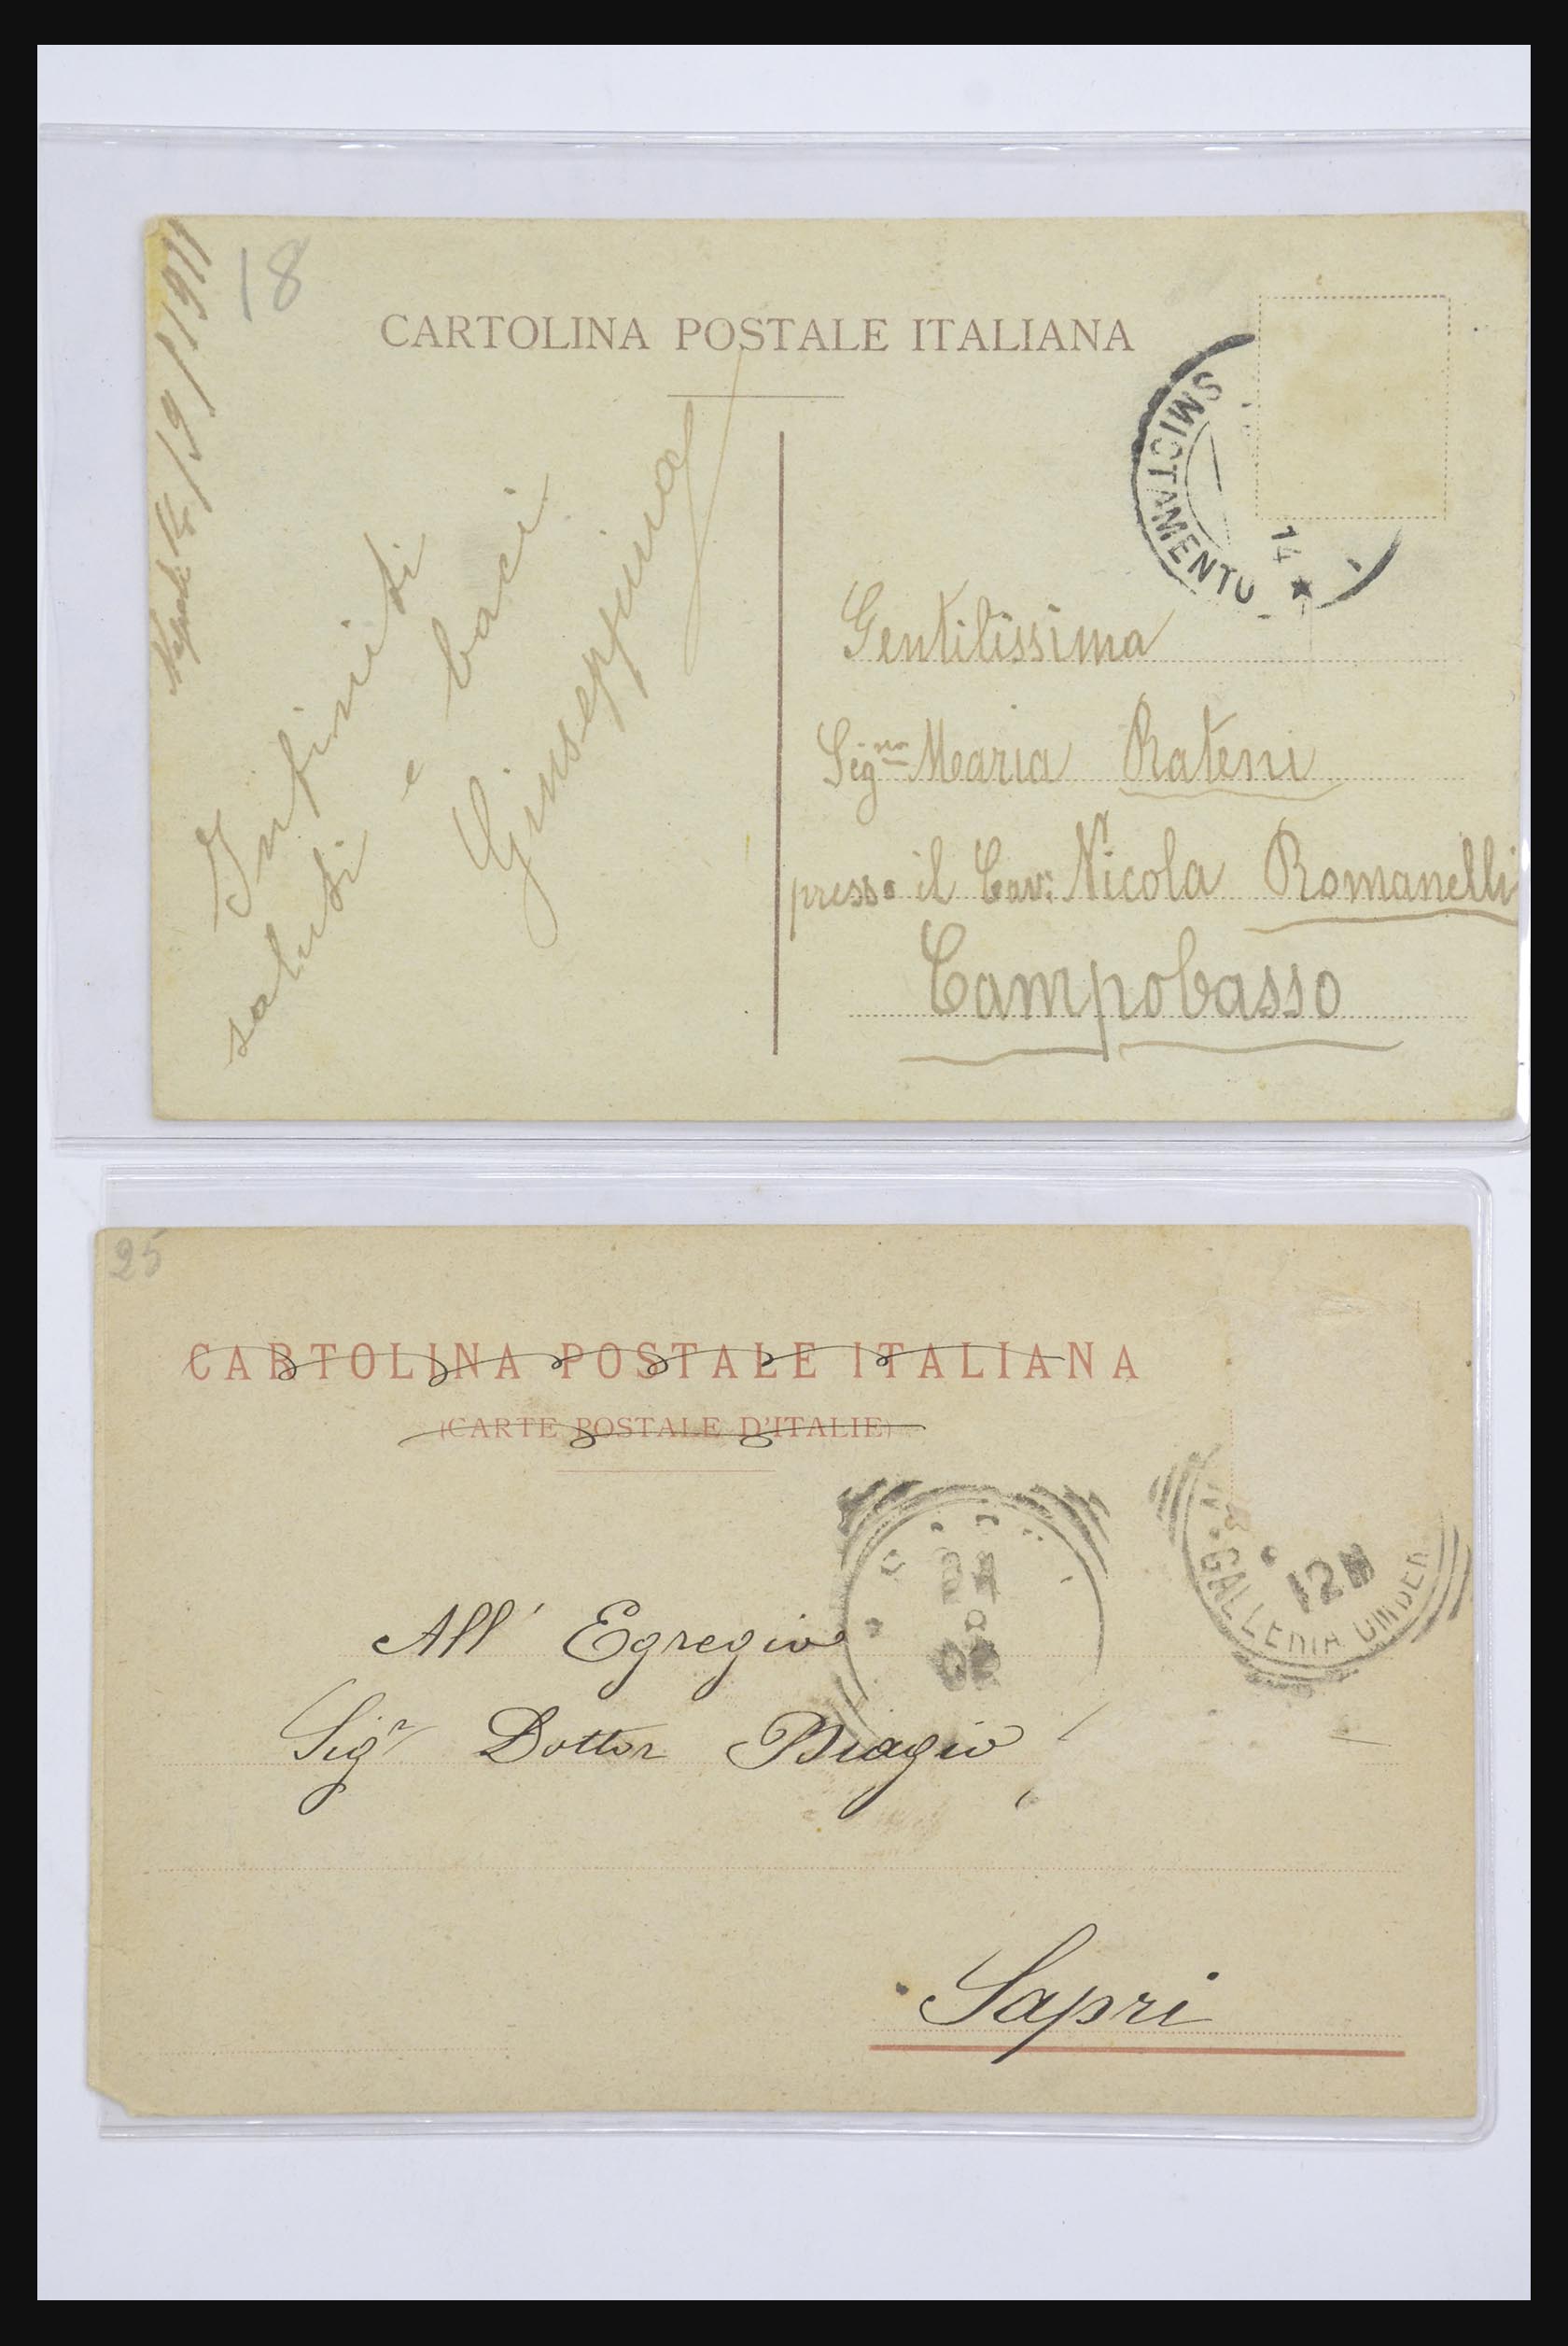 18
CARTOLINA POSTALE ITALIANA
Napoli 19/1/1911
Infiniti
saluti e baci
Giuseppina
SMISTAMENTO
14
Gentilissima
Signa Maria Rateni
presso il Cav: Nicola Romanelli
Campobasso
25
CARTOLINA POSTALE ITALIANA
(CARTE POSTALE D'ITALIE)
GALLERIA UMBER
12M
All' Egregio
Sigr Dottor Biagio
Sapri